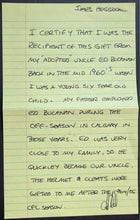 JAMES
I CERTIFY THAT I WAS THE
RECIPIENT OF THIS GIFT FROM
MY ADOPTED UNCLE ED BUCANAN
BACK IN THE MID 1960'S WHEN I
WAS A YOUNG SIX YEAR OLD
CHILD. MY FATHER EMPLOYED
ED BUCANAN DURING THE
OFF-SEASON IN CALGARY IN
THOSE YEARS. ED WAS VERY
CLOSE TO MY FAMILY, SO HE
QUICKLEY BECAME OUR UNCLE.
THE HELMET & CLEATS WERE
GIFTED TO ME AFTER THE
CFL SEASON.